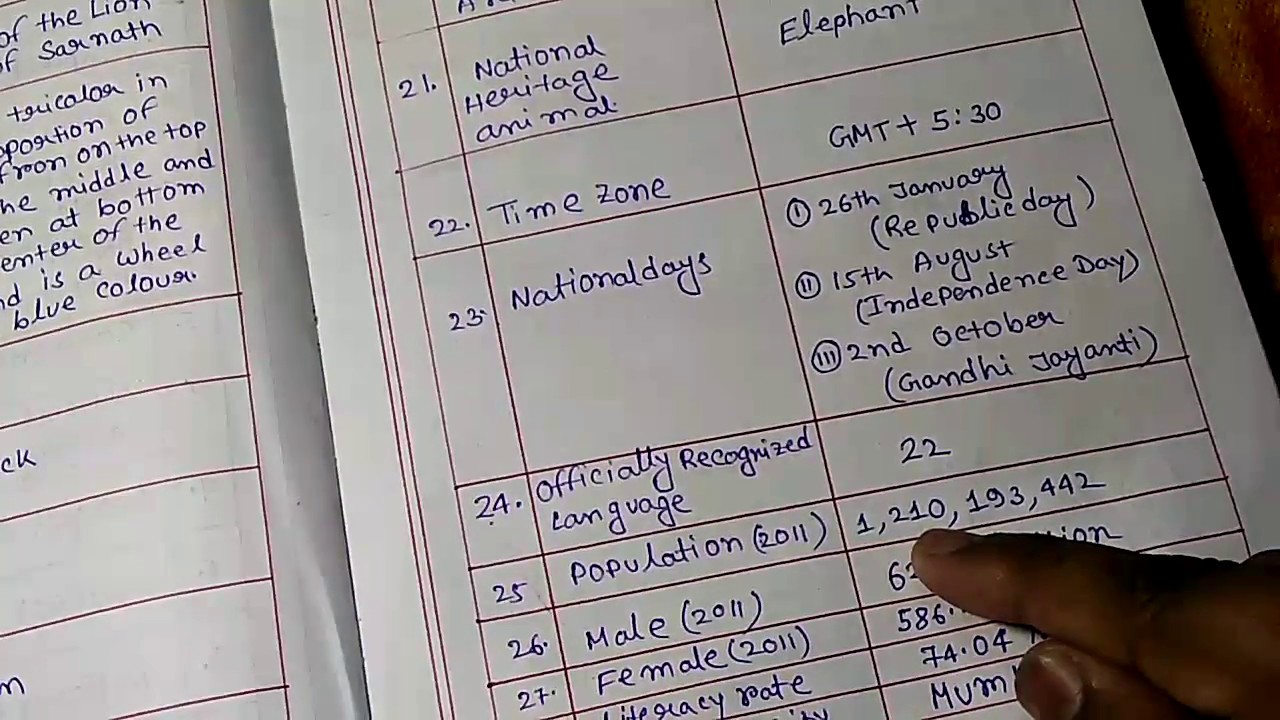 of the Lion
of Sarnath
tricolor in
portion of
on the top
middle and
at bottom
of the
is a wheel
blue colour.
21. National Heritage animal. Elephant
22. Time zone GMT + 5:30
23. National days
(I) 26th January
(Republic day)
(II) 15th August
(Independence Day)
(III) 2nd October
(Gandhi Jayanti)
24. Officially Recognized 22
Language
25 Population (2011) 1,210,193,442
26. Male (2011)
27. Female (2011) 586.
Literacy rate 74.04